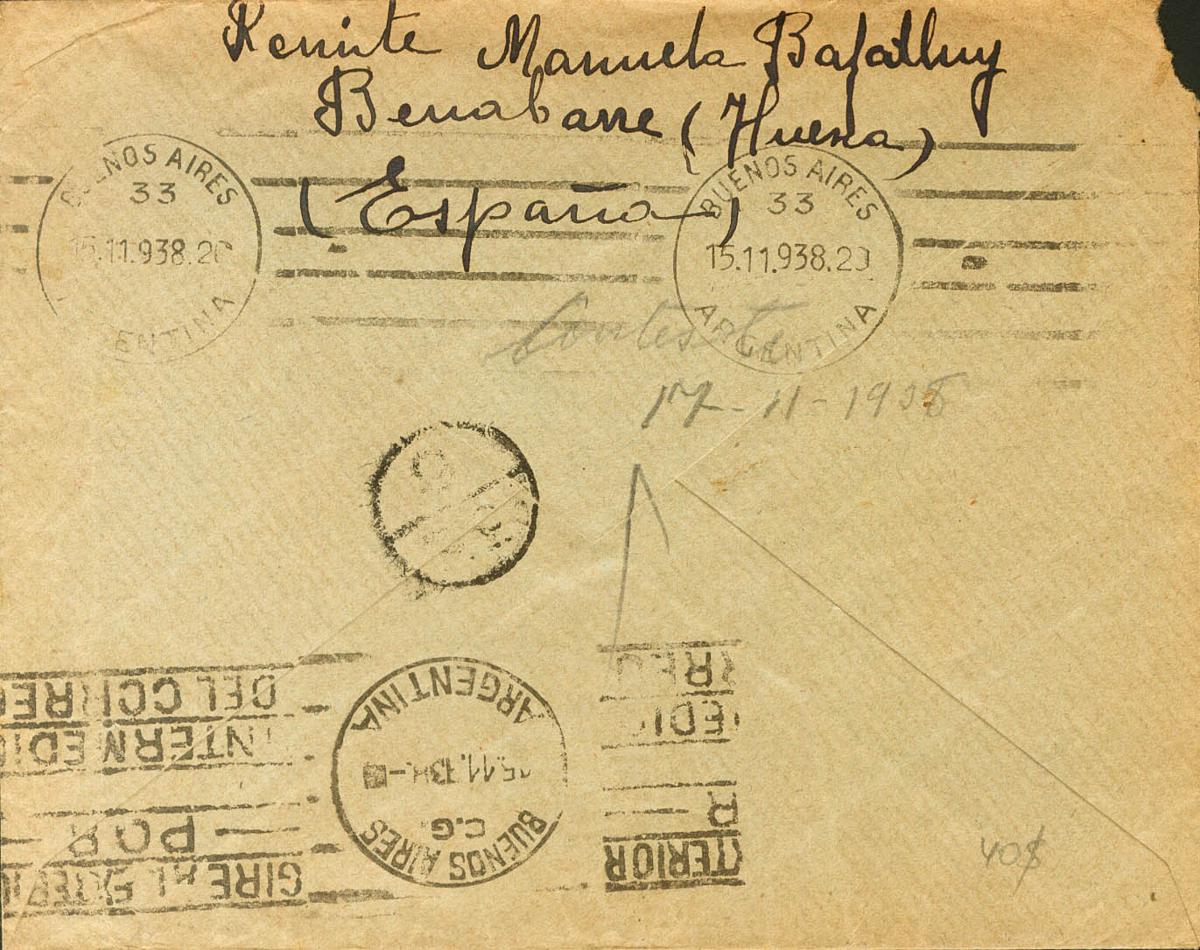 Remite Manuela Bafalluy
Benabarre (Huesca)
(España)
BUENOS AIRES
33
15.11.938.20
ENTINA
BUENOS AIRES
33
15.11.938.20
ARGENTINA
Contesté
17-11-1938
BUENOS AIRES
C.G.
15.11.
ARGENTINA
GIRE AL EXTERI
— POR —
INTERMEDIO
DEL CORREO
TERIOR
R —
EDIO
RREO
40$